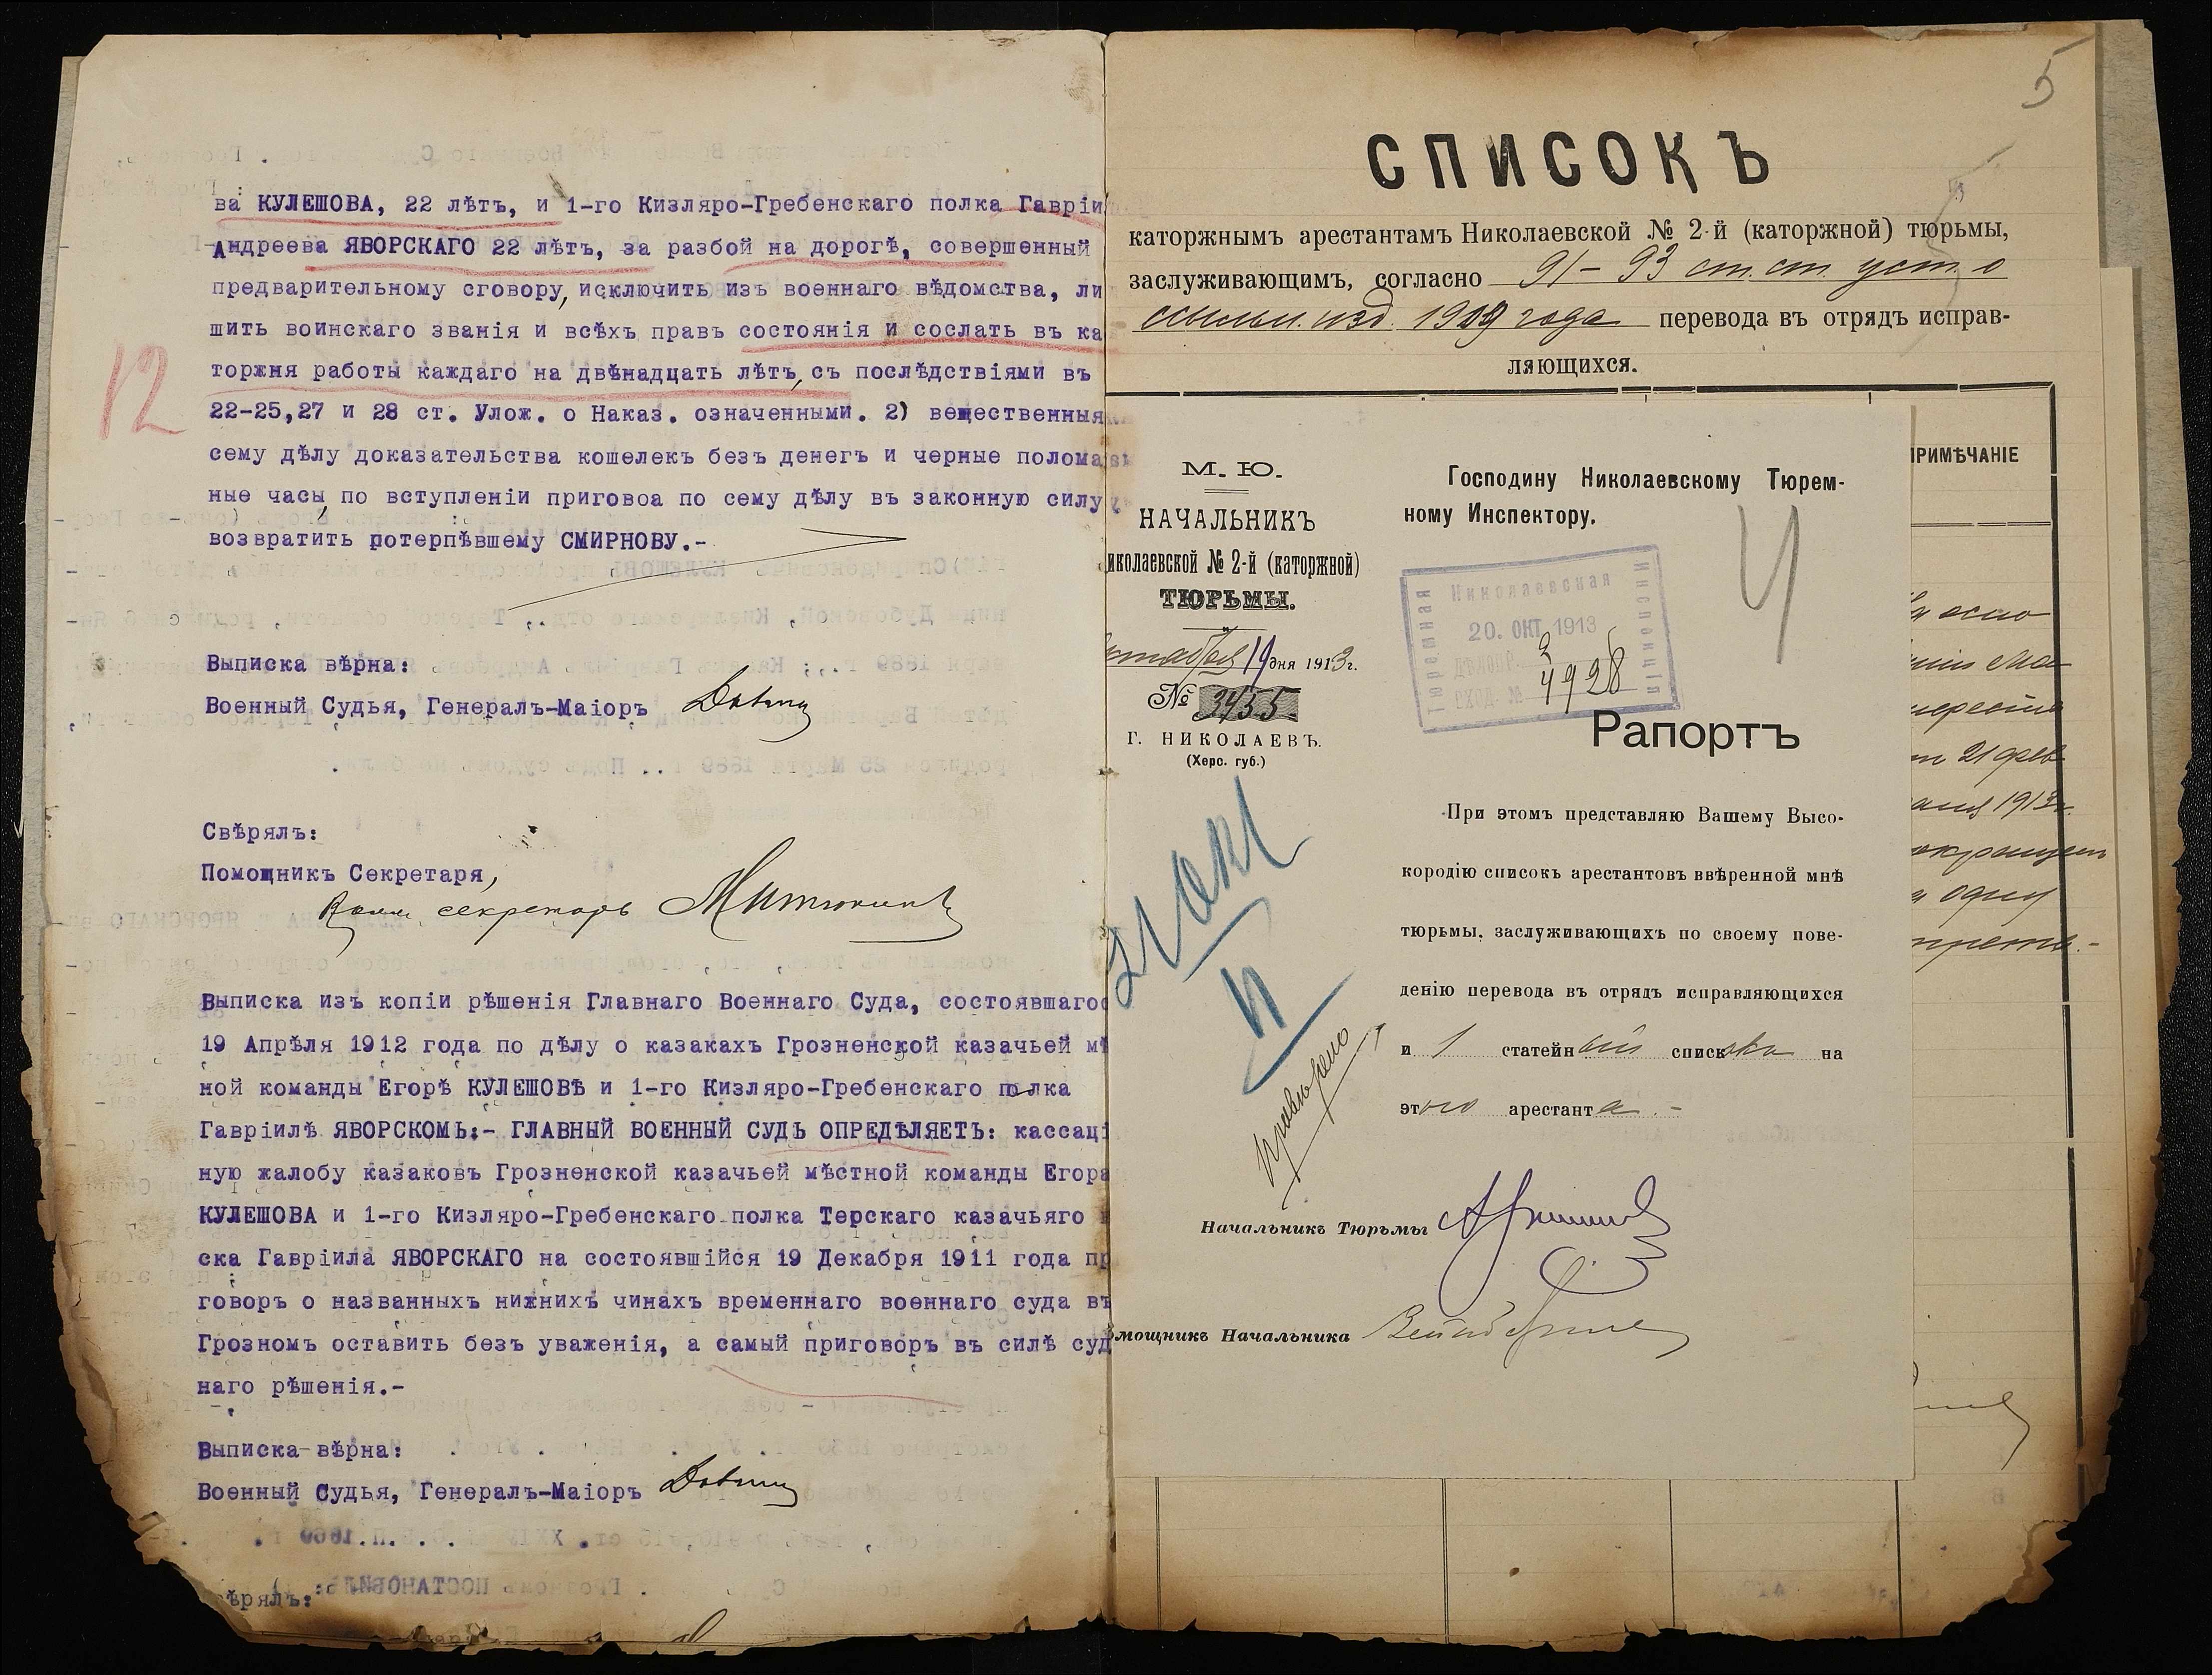 ва КУЛЕШОВА, 22 лѣтъ, и 1-го Кизляро-Гребенскаго полка Гавріи
Андреева ЯВОРСКАГО 22 лѣтъ, за разбой на дорогѣ, совершенный
предварительному сговору, исключить изъ военнаго вѣдомства, ли
шить воинскаго званія и всѣхъ правъ состоянія и сослать въ ка
торжня работы каждаго на двѣнадцать лѣтъ, съ послѣдствіями въ
12
22-25,27 и 28 ст. Улож. о Наказ. означенными. 2) вещественныя
сему дѣлу доказательства кошелекъ безъ денегъ и черные полома
ные часы, по вступленіи приговоа по сему дѣлу въ законную силу
возвратить потерпѣвшему СМИРНОВУ.-
Выписка вѣрна:
Военный Судья, Генералъ-Маіоръ
Свѣрялъ:
Помощникъ Секретаря,
секретарь
Выписка изъ копіи рѣшенія Главнаго Военнаго Суда, состоявшагос
19 Апрѣля 1912 года по дѣлу о казакахъ Грозненской казачьей мѣ
ной команды Егорѣ КУЛЕШОВѢ и 1-го Кизляро-Гребенскаго полка
Гавріилѣ ЯВОРСКОМЪ:- ГЛАВНЫЙ ВОЕННЫЙ СУДЪ ОПРЕДѢЛЯЕТЪ: кассаці
ную жалобу казаковъ Грозненской казачьей мѣстной команды Егора
КУЛЕШОВА и 1-го Кизляро-Гребенскаго полка Терскаго казачьяго
ска Гавріила ЯВОРСКАГО на состоявшійся 19 Декабря 1911 года пр
говоръ о названныхъ нижнихъ чинахъ временнаго военнаго суда въ
Грозномъ оставить безъ уваженія, а самый приговоръ въ силѣ суд
наго рѣшенія.-
Выписка вѣрна:
Военный Судья, Генералъ-Маіоръ
ѣрялъ:
5
СПИСОКЪ
каторжнымъ арестантамъ Николаевской № 2-й (каторжной) тюрьмы,
заслуживающимъ, согласно 91-93 ст. ст. уст. о
ссыльн. изд. 1909 года перевода въ отрядъ исправ-
ляющихся.
РИМѢЧАНІЕ
т 21 фев
1913г.
одну
треть.-
М. Ю.
НАЧАЛЬНИКЪ
иколаевской № 2-й (каторжной)
ТЮРЬМЫ.
19 дня 1913г.
№ 3455
Г. НИКОЛАЕВЪ.
(Херс. губ.)
21 окт
Провѣрено
Господину Николаевскому Тюрем-
ному Инспектору.
4
Николаевская
Тюремная
Инспекція
20. ОКТ. 1913
ДѢЛОПР. 2
СХОД. № 4928
Рапортъ
При этомъ представляю Вашему Высо-
кородію списокъ арестантовъ ввѣренной мнѣ
тюрьмы, заслуживающихъ по своему пове-
денію перевода въ отрядъ исправляющихся
и 1 статейный списокъ на
этого арестанта.-
Начальникъ Тюрьмы
мощникъ Начальника